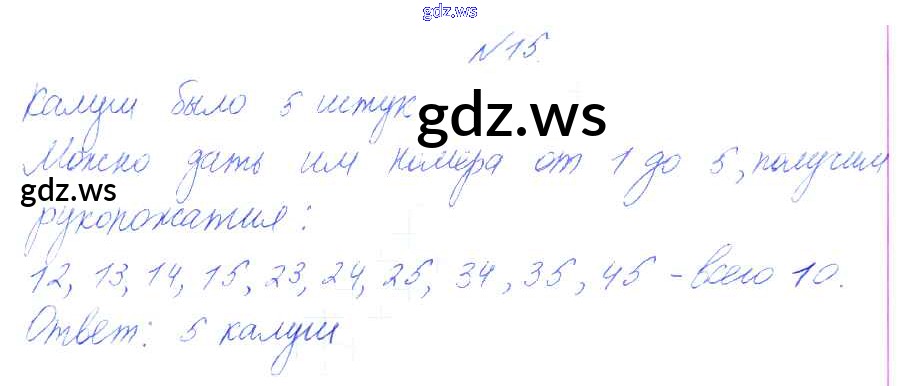 gdz.ws
№15.
Калуш было 5 штук
gdz.ws
Можно дать им номера от 1 до 5, получим
gdz.ws
рукопожатия:
12, 13, 14, 15, 23, 24, 25, 34, 35, 45 - всего 10.
Ответ: 5 калуш